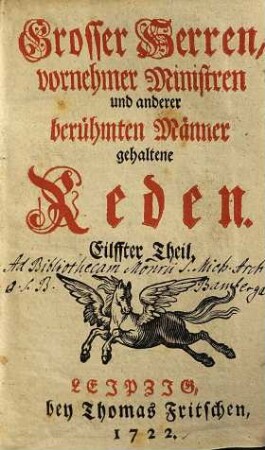 Grosser Herren,
vornehmer Ministren
und anderer
berühmten Männer
gehaltene
Reden.
Eilffter Theil,
Ad Bibliothecam S. Mich. Arch
Bambergæ
LEIPZIG,
bey Thomas Fritschen,
1722.